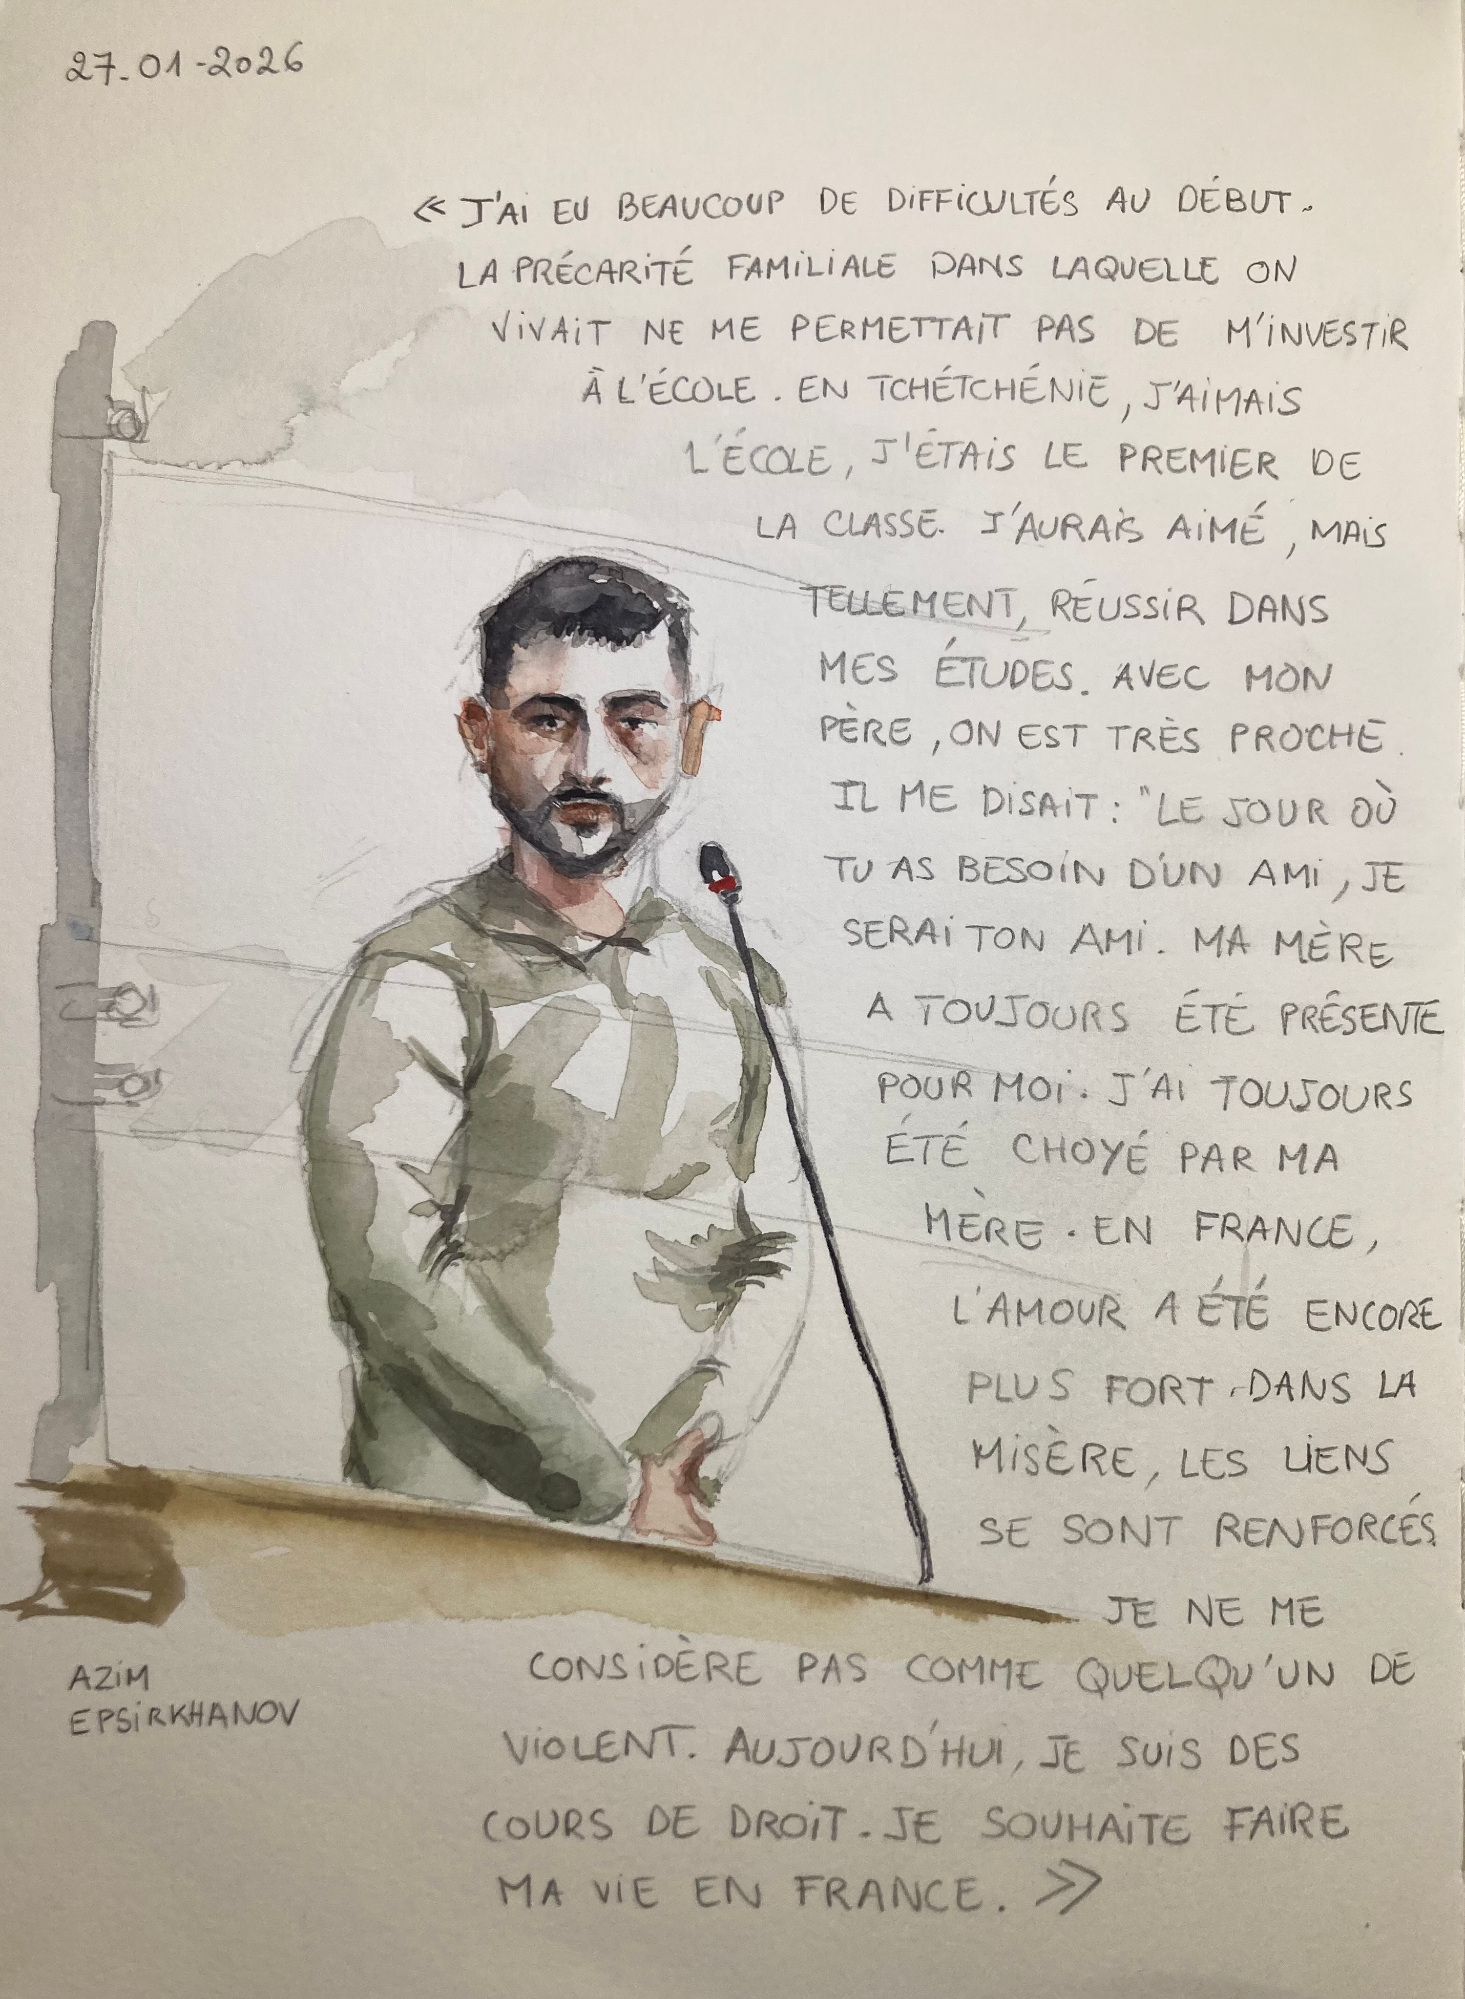 27-01-2026
« J'AI EU BEAUCOUP DE DIFFICULTÉS AU DÉBUT.
LA PRÉCARITÉ FAMILIALE DANS LAQUELLE ON
VIVAIT NE ME PERMETTAIT PAS DE M'INVESTIR
À L'ÉCOLE. EN TCHÉTCHÉNIE, J'AIMAIS
L'ÉCOLE, J'ÉTAIS LE PREMIER DE
LA CLASSE. J'AURAIS AIMÉ, MAIS
TELLEMENT, RÉUSSIR DANS
MES ÉTUDES. AVEC MON
PÈRE, ON EST TRÈS PROCHE.
IL ME DISAIT : "LE JOUR OÙ
TU AS BESOIN D'UN AMI, JE
SERAI TON AMI. MA MÈRE
A TOUJOURS ÉTÉ PRÉSENTE
POUR MOI. J'AI TOUJOURS
ÉTÉ CHOYÉ PAR MA
MÈRE. EN FRANCE,
L'AMOUR A ÉTÉ ENCORE
PLUS FORT. DANS LA
MISÈRE, LES LIENS
SE SONT RENFORCÉS
JE NE ME
CONSIDÈRE PAS COMME QUELQU'UN DE
VIOLENT. AUJOURD'HUI, JE SUIS DES
COURS DE DROIT. JE SOUHAITE FAIRE
MA VIE EN FRANCE. »
AZIM
EPSIRKHANOV